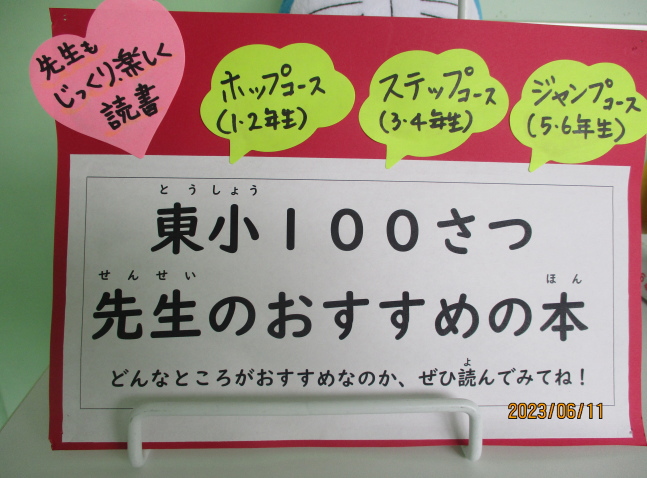 先生も
じっくり、楽しく
読書
ホップコース
(1・2年生)
ステップコース
(3・4年生)
ジャンプコース
(5・6年生)
とうしょう
東小１００さつ
せんせい ほん
先生のおすすめの本
よ
どんなところがおすすめなのか、ぜひ読んでみてね！
2023/06/11